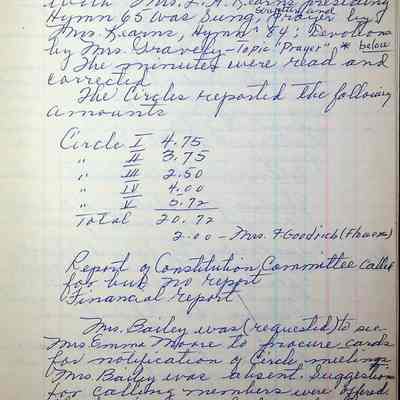 with Mrs. L. A. Kearns presiding
Hymn 65 was sung, Prayer by
Mrs. Kearns, Hymn 54; Devotions
by Mrs. Gravely - Topic "Prayer" * below
The minutes were read and
corrected
The Circles reported the following
amounts
Circle I 4.75
" II 3.75
" III 2.50
" IV 4.00
" V 5.72
Total 20.72
2.00 - Mrs. Goodrich (Flowers)
Report of Constitution Committee called
for but no report
Financial Report
Mrs. Bailey was (requested) to see
Mrs Emma Moore to procure cards
for notification of Circle meetings
Mrs. Bailey was absent. Suggestions
for calling members were offered.